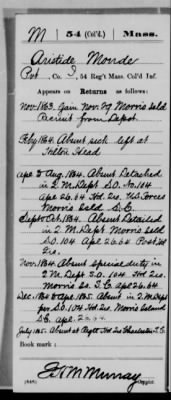 M | 54 (Col'd.) | Mass.
Aristide Monde
Pvt., Co. I, 54 Reg't Mass. Col'd Inf.
Appears on Returns as follows:
Nov. 1863. Gain Nov. 29 Morris Isld
Recruit from Depot.
Feby 1864. Absent sick left at
Hilton Head
Apr. to Aug. 1864. Absent Detached
in Q. M. Dept S.O. No. 104
Apr. 26. 64 Hd. Qrs. U.S. Forces
Morris Isld. S.C.
Sept & Oct. 1864. Absent Detailed
in Q. M. Dept Morris Isld
S.O. 104 Apr. 26. 64 Post Hd
Qrs.
Nov. 1864. Absent special duty in
Q. M. Dept S.O. 104 Hd. Qrs.
Morris Is. S.C. Apr 26. 64
Dec. 1864 to Apr. 1865. Absent in Q. M. Dept
per S.O. 104 Hd. Qrs. Morris Island
S.C. Apr. 26. 64
July 1865. Absent at Regtl Hd. Qrs Charleston S.C.
Book mark:
Murray
(546) Copyist.